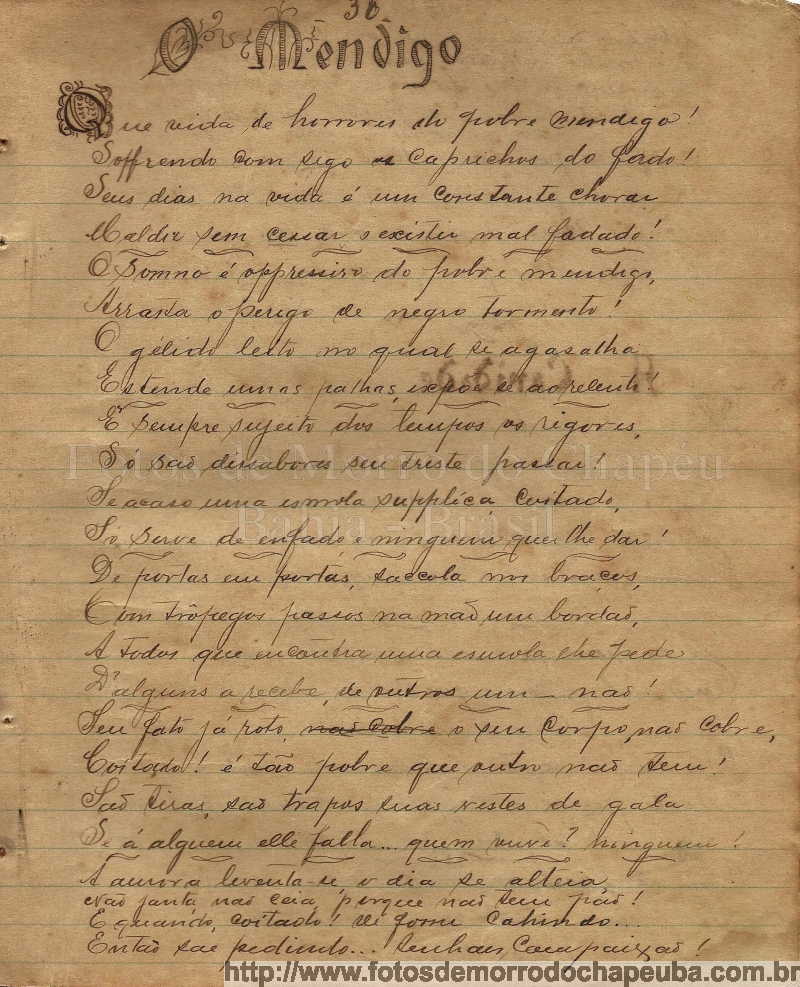 36
O Mendigo
Que vida de horrores do pobre mendigo!
Soffrendo com sigo os caprichos do fado!
Seus dias na vida é um constante chorar
Maldiz sem cessar o existir mal fadado!
O somno é oppressivo do pobre mendigo,
Arrasta o perigo de negro tormento!
O gélido leito no qual se agasalha
Estende umas palhas, expoe se ao relento!
E' sempre sujeito dos tempos os rigores,
Só são disabores seu triste passar!
Se acaso uma esmola supplíca, coitado,
Só serve de enfado e ninguem quer lhe dar!
De portas em portas, saccola nos braços,
Com trôpegos passos na mão um bordão,
A todos que encontra uma esmola elle pede
D'alguns a recebe, de outros um - não!
Seu fato já roto, não cobre o seu corpo, não cobre,
Coitado! é tão pobre que outro não tem!
São tiras, são trapos suas vestes de gala
Se á alguem elle falla... quem ouve? ninguem!
A aurora levanta-se o dia se alteia
Não janta não ceia, porque não tem pão!
E quando, coitado! de fome cahindo...
Então sae pedindo... Senhores, Compaixão!
Fotos de Morro do Chapeu
Bahia - Brasil
http://www.fotosdemorrodochapeuba.com.br